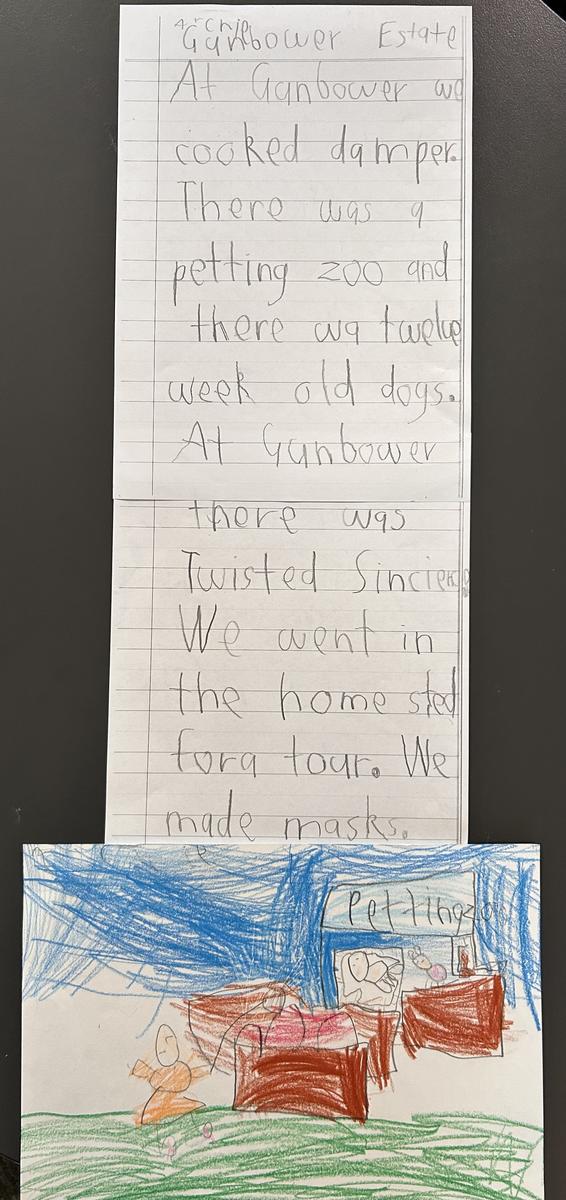 Archie
Ganbower Estate
At Ganbower we
cooked damper.
There was a
petting zoo and
there wa twelve
week old dogs.
At Ganbower
there was
Twisted Sincience
We went in
the home sted
for a tour. We
made masks.
Petting zoo